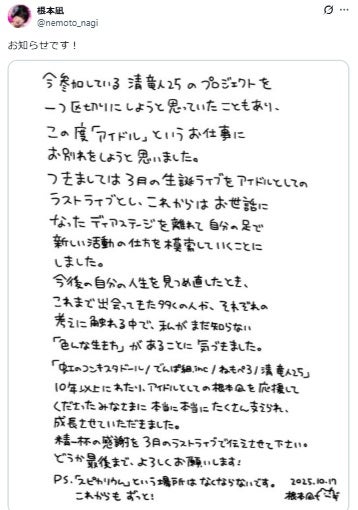 根本凪
@nemoto_nagi
お知らせです！
今参加している 清竜人25 の プロジェクト を
一つ区切りにしようと思っていたこともあり、
この度「アイドル」というお仕事に
お別れをしようと思いました。
つきましては 3月の生誕ライブをアイドルとしての
ラストライブとし、これからは お世話に
なった ディアステージを離れて 自分の足で
新しい活動の仕方を模索していくことに
しました。
今後の自分の人生を見つめ直したとき、
これまで出会ってきた多くの人や、それぞれの
考えに触れる中で、私がまだ知らない
「色んな生き方」があることに気づきました。
「虹のコンキスタドール/でんぱ組.inc/ねもぺろ/清竜人25」
10年以上にわたり、アイドルとしての根本凪を応援して
くださったみなさまに本当に本当にたくさん支えられ、
成長させていただきました。
精一杯の感謝を3月のラストライブで伝えさせて下さい。
どうか最後まで、よろしくお願いします!
P.S.「スピカリウム」という場所はなくならないです。
これからも ずっと!
2025.10.17
根本凪